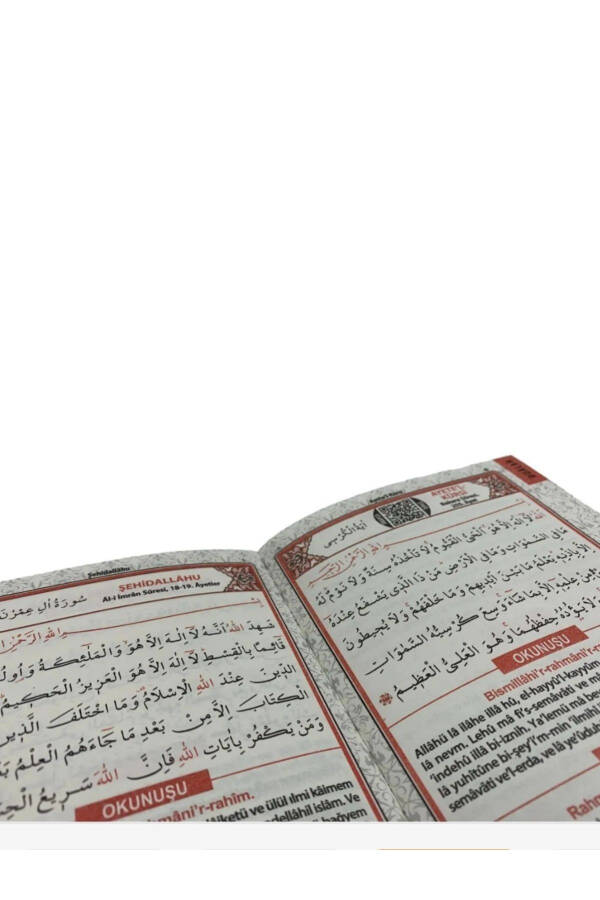 Şehidallâhu
ŞEHİDALLÂHU
Al-i İmrân Sûresi, 18-19. Âyetler
سُورَةُ اٰلِ عِمْرٰنَ
شَهِدَ اللّٰهُ اَنَّهُ لَا اِلٰهَ اِلَّا هُوَ وَالْمَلٰٓئِكَةُ وَاُولُ
قَٓائِمًا بِالْقِسْطِ لَا اِلٰهَ اِلَّا هُوَ الْعَزِيزُ الْحَكِيمُ
الدِّينَ عِنْدَ اللّٰهِ الْاِسْلَامُ وَمَا اخْتَلَفَ الَّذِينَ
الْكِتَابَ اِلَّا مِنْ بَعْدِ مَا جَٓاءَهُمُ الْعِلْمُ
وَمَنْ يَكْفُرْ بِاٰيَاتِ اللّٰهِ فَاِنَّ اللّٰهَ سَرِيعُ
OKUNUŞU
mâni'r-rahîm.
ve ülül ılmi kâimem
islâm. Ve
Ayete'l Kürsi
AYETE'L
KÜRSİ
Bakara Sûresi,
255. Âyet
اٰيَةُ الْكُرْسِى
اَللّٰهُ لَٓا اِلٰهَ اِلَّا هُوَ اَلْحَىُّ الْقَيُّومُ لَا تَأْخُذُهُ سِنَةٌ وَلَا نَوْمٌ لَهُ
مَا فِى السَّمٰوَاتِ وَمَا فِى الْاَرْضِ مَنْ ذَا الَّذِى يَشْفَعُ عِنْدَهُ
اِلَّا بِاِذْنِهِ يَعْلَمُ مَا بَيْنَ اَيْدِيهِمْ وَمَا خَلْفَهُمْ وَلَا يُحِيطُونَ
مِنْ عِلْمِهِ اِلَّا بِمَا شَٓاءَ وَسِعَ كُرْسِيُّهُ السَّمٰوَاتِ
وَلَا يَؤُدُهُ حِفْظُهُمَا وَهُوَ الْعَلِىُّ الْعَظِيمُ
OKUNUŞU
Bismillâhi'r-rahmâni'r-
Allâhü lâ ilâhe illâ hû, el-hayyü'l-kayyûm
lâ nevm. Lehû mâ fi's-semâvâti ve
'indehû illâ bi-iznih. Ya'lemü mâ
lâ yuhîtûne bi-şey'i'm-min 'ilmihî
semâvâti ve'l-erda, ve lâ